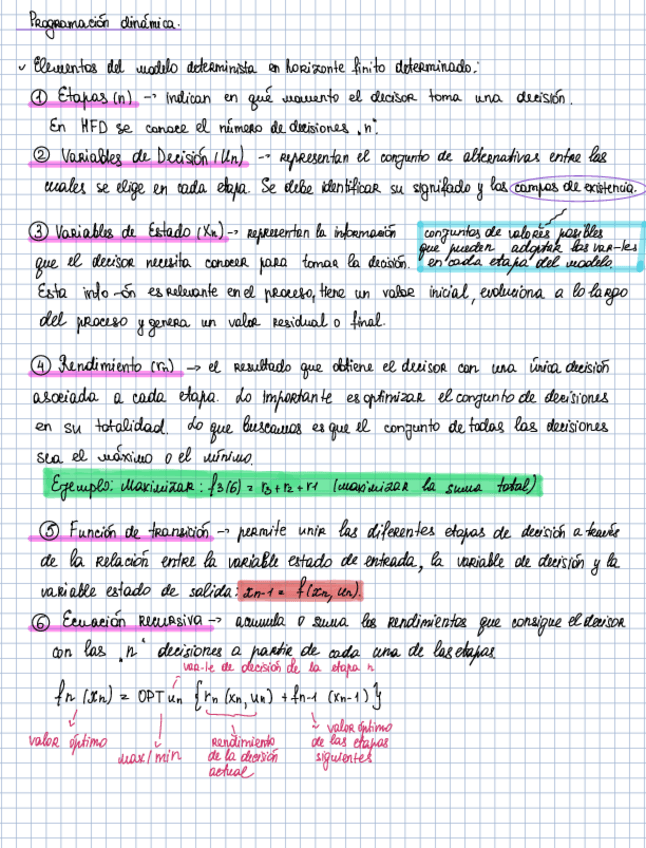 Programación dinámica.
✓ Elementos del modelo determinista en horizonte finito determinado:
① Etapas (n) → indican en qué momento el decisor toma una decisión.
En HFD se conoce el número de decisiones „n“.
② Variables de Decisión (Un) → representan el conjunto de alternativas entre las
cuales se elige en cada etapa. Se debe identificar su signifado y los campos de existencia.
③ Variables de Estado (Xn) → representan la información
que el decisor necesita conocer para tomar la decisión.
conjuntos de valores posibles
que pueden adoptar las var-les
en cada etapa del modelo.
Esta info-ón es relevante en el proceso, tiene un valor inicial, evoluciona a lo largo
del proceso y genera un valor residual o final.
④ Rendimiento (rn) → el resultado que obtiene el decisor con una única decisión
asociada a cada etapa. Lo importante es optimizar el conjunto de decisiones
en su totalidad. Lo que buscamos es que el conjunto de todas las decisiones
sea el máximo o el mínimo.
Ejemplo: Maximizar: f3(6) = r3 + r2 + r1 (maximizar la suma total)
⑤ Función de transición → permite unir las diferentes etapas de decisión a través
de la relación entre la variable estado de entrada, la variable de decisión y la
variable estado de salida: xn-1 = f(xn, un).
⑥ Ecuación recursiva → acumula o suma los rendimientos que consigue el decisor
con las „n“ decisiones a partir de cada una de las etapas
var-le de decisión de la etapa n
fn (xn) = OPT un {rn (xn, un) + fn-1 (xn-1)}
valor óptimo
max/min
rendimiento
de la decisión
actual
valor óptimo
de las etapas
siguientes